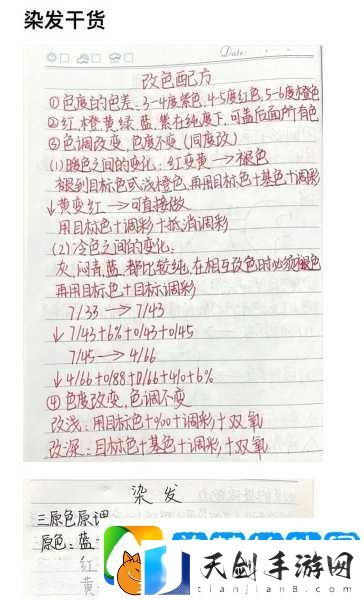 染发干货
Date:
改色配方
①色度的色差：3-4度紫色，4-5度红色，5-6度橙色
②红、橙、黄、绿、蓝、紫在纯度下，可盖后面所有色
③色调改变，色度不变（同度改）
(1)暖色之间的变化：红变黄→褪色
褪到目标色或浅橙色，再用目标色+基色+调彩
↓黄变红→可直接做
用目标色+调彩+抵消调彩
(2)冷色之间的变化：
灰、闷青、蓝 都比较纯，在相互改色时必须褪色
再用目标色+目标调彩
7/33→7/43
↓7/43+6%+0/43+0/45
7/45→4/66
↓4/66+0/88+0/66+4/0+6%
④色度改变，色调不变
改浅：用目标色+%00+调彩+双氧
改深：目标色+基色+调彩+双氧
染发
三原色原调
原色：蓝
红
黄
天剑手游网
tianjian8.com